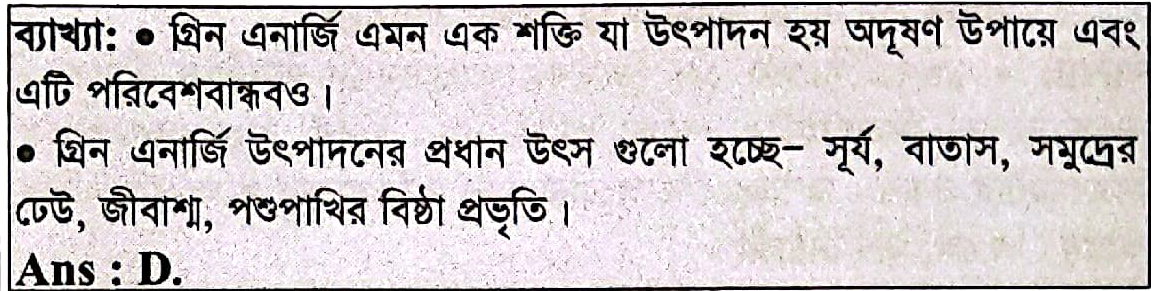 ব্যাখ্যা: ● গ্রিন এনার্জি এমন এক শক্তি যা উৎপাদন হয় অদূষণ উপায়ে এবং
এটি পরিবেশবান্ধবও।
● গ্রিন এনার্জি উৎপাদনের প্রধান উৎস গুলো হচ্ছে– সূর্য, বাতাস, সমুদ্রের
ঢেউ, জীবাশ্ম, পশুপাখির বিষ্ঠা প্রভৃতি।
Ans : D.